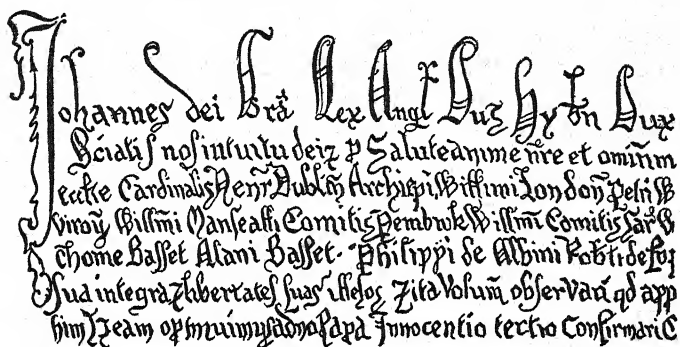 Johannes dei Grã Rex Angl Dns Hybn Dux
Sciatis nos intuitu dei z p Salute anime nrẽ et omnĩm
ecctie Cardinalis Henr̃ Dublin̄ Archiepi, Willimi London̄ Petri W
viroȝ Willmi Marescalli Comitis Pembrok Willm̃i Comitis Sar̃ W
Thome Basset Alani Basset. Philippi de Albini Robti de
Sua integra z libertates suas illesas z ita Volum̃ observari qd app
Papa Innocentio tertio Confirmari